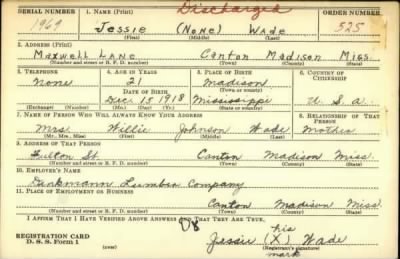 Discharged
SERIAL NUMBER 1. NAME (Print) ORDER NUMBER
1969 Jessie (None) Wade 525
(First) (Middle) (Last)
2. ADDRESS (Print)
Maxwell Lane Canton Madison Miss
(Number and street or R. F. D. number) (Town) (County) (State)
3. TELEPHONE 4. AGE IN YEARS 5. PLACE OF BIRTH 6. COUNTRY OF CITIZENSHIP
None 21 Madison
DATE OF BIRTH (Town or county)
Dec. 15 1918 Mississippi U.S.a.
(Exchange) (Number) (Mo.) (Day) (Yr.) (State or country)
7. NAME OF PERSON WHO WILL ALWAYS KNOW YOUR ADDRESS 8. RELATIONSHIP OF THAT PERSON
Mrs. Willie Johnson Wade Mother
(Mr., Mrs., Miss) (First) (Middle) (Last)
9. ADDRESS OF THAT PERSON
Fulton St. Canton Madison Miss.
(Number and street or R. F. D. number) (Town) (County) (State)
10. EMPLOYER'S NAME
Denkmann Lumber Company
11. PLACE OF EMPLOYMENT OR BUSINESS
Canton Madison Miss.
(Number and street or R. F. D. number) (Town) (County) (State)
I AFFIRM THAT I HAVE VERIFIED ABOVE ANSWERS AND THAT THEY ARE TRUE.
his
REGISTRATION CARD Jessie (X) Wade
D. S. S. Form 1 (over) (Registrant's signature)
mark